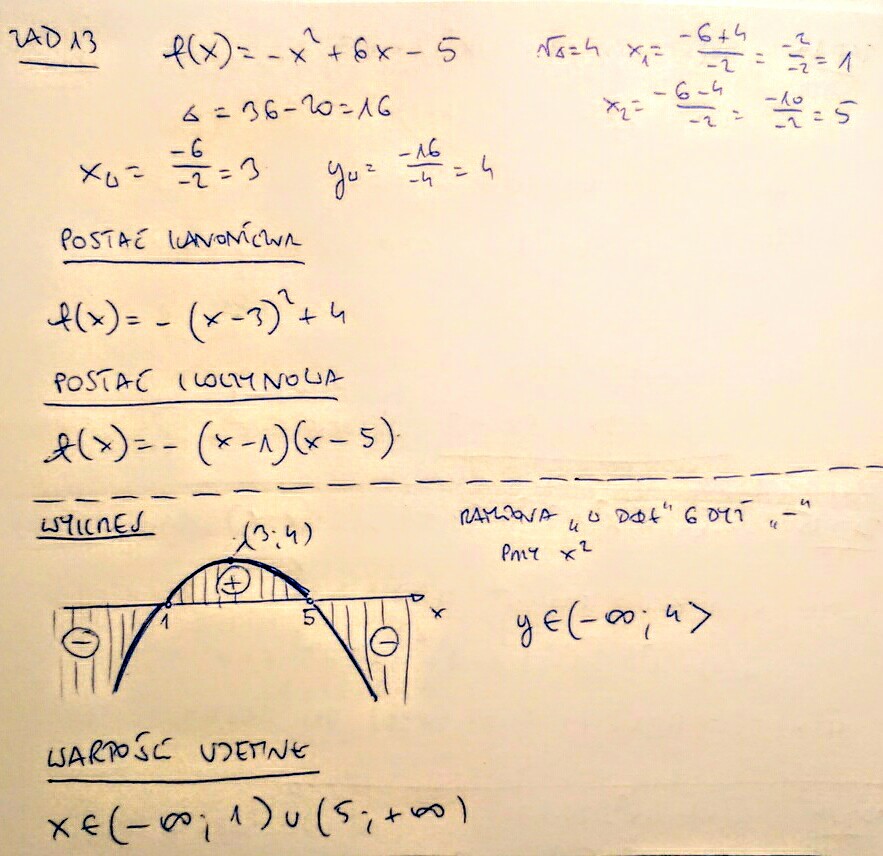 ZAD 13
f(x) = -x² + 6x - 5
√Δ=4 x₁ = (-6+4)/(-2) = (-2)/(-2) = 1
x₂ = (-6-4)/(-2) = (-10)/(-2) = 5
Δ = 36-20=16
xᵤ = (-6)/(-2) = 3 yᵤ = (-16)/(-4) = 4
POSTAĆ KANONICZNA
f(x) = -(x-3)² + 4
POSTAĆ ILOCZYNOWA
f(x) = -(x-1)(x-5)
WYKRES
(3;4)
+
1
5
x
-
-
RAMIONA „W DÓŁ" GDYŻ „-"
PRZY x²
y∈(-∞; 4>
WARTOŚĆ UJEMNE
x∈(-∞; 1)∪(5;+∞)